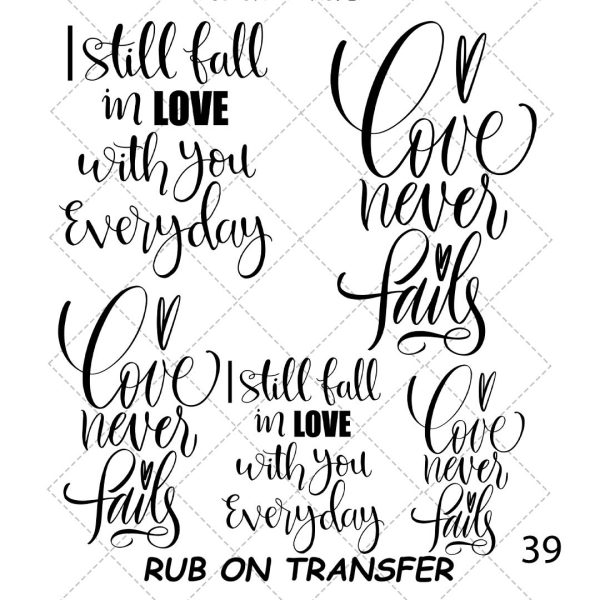 I still fall
in LOVE
with you
Everyday
love
never
fails
love
never
fails
I still fall
in LOVE
with you
Everyday
love
never
fails
RUB ON TRANSFER
39